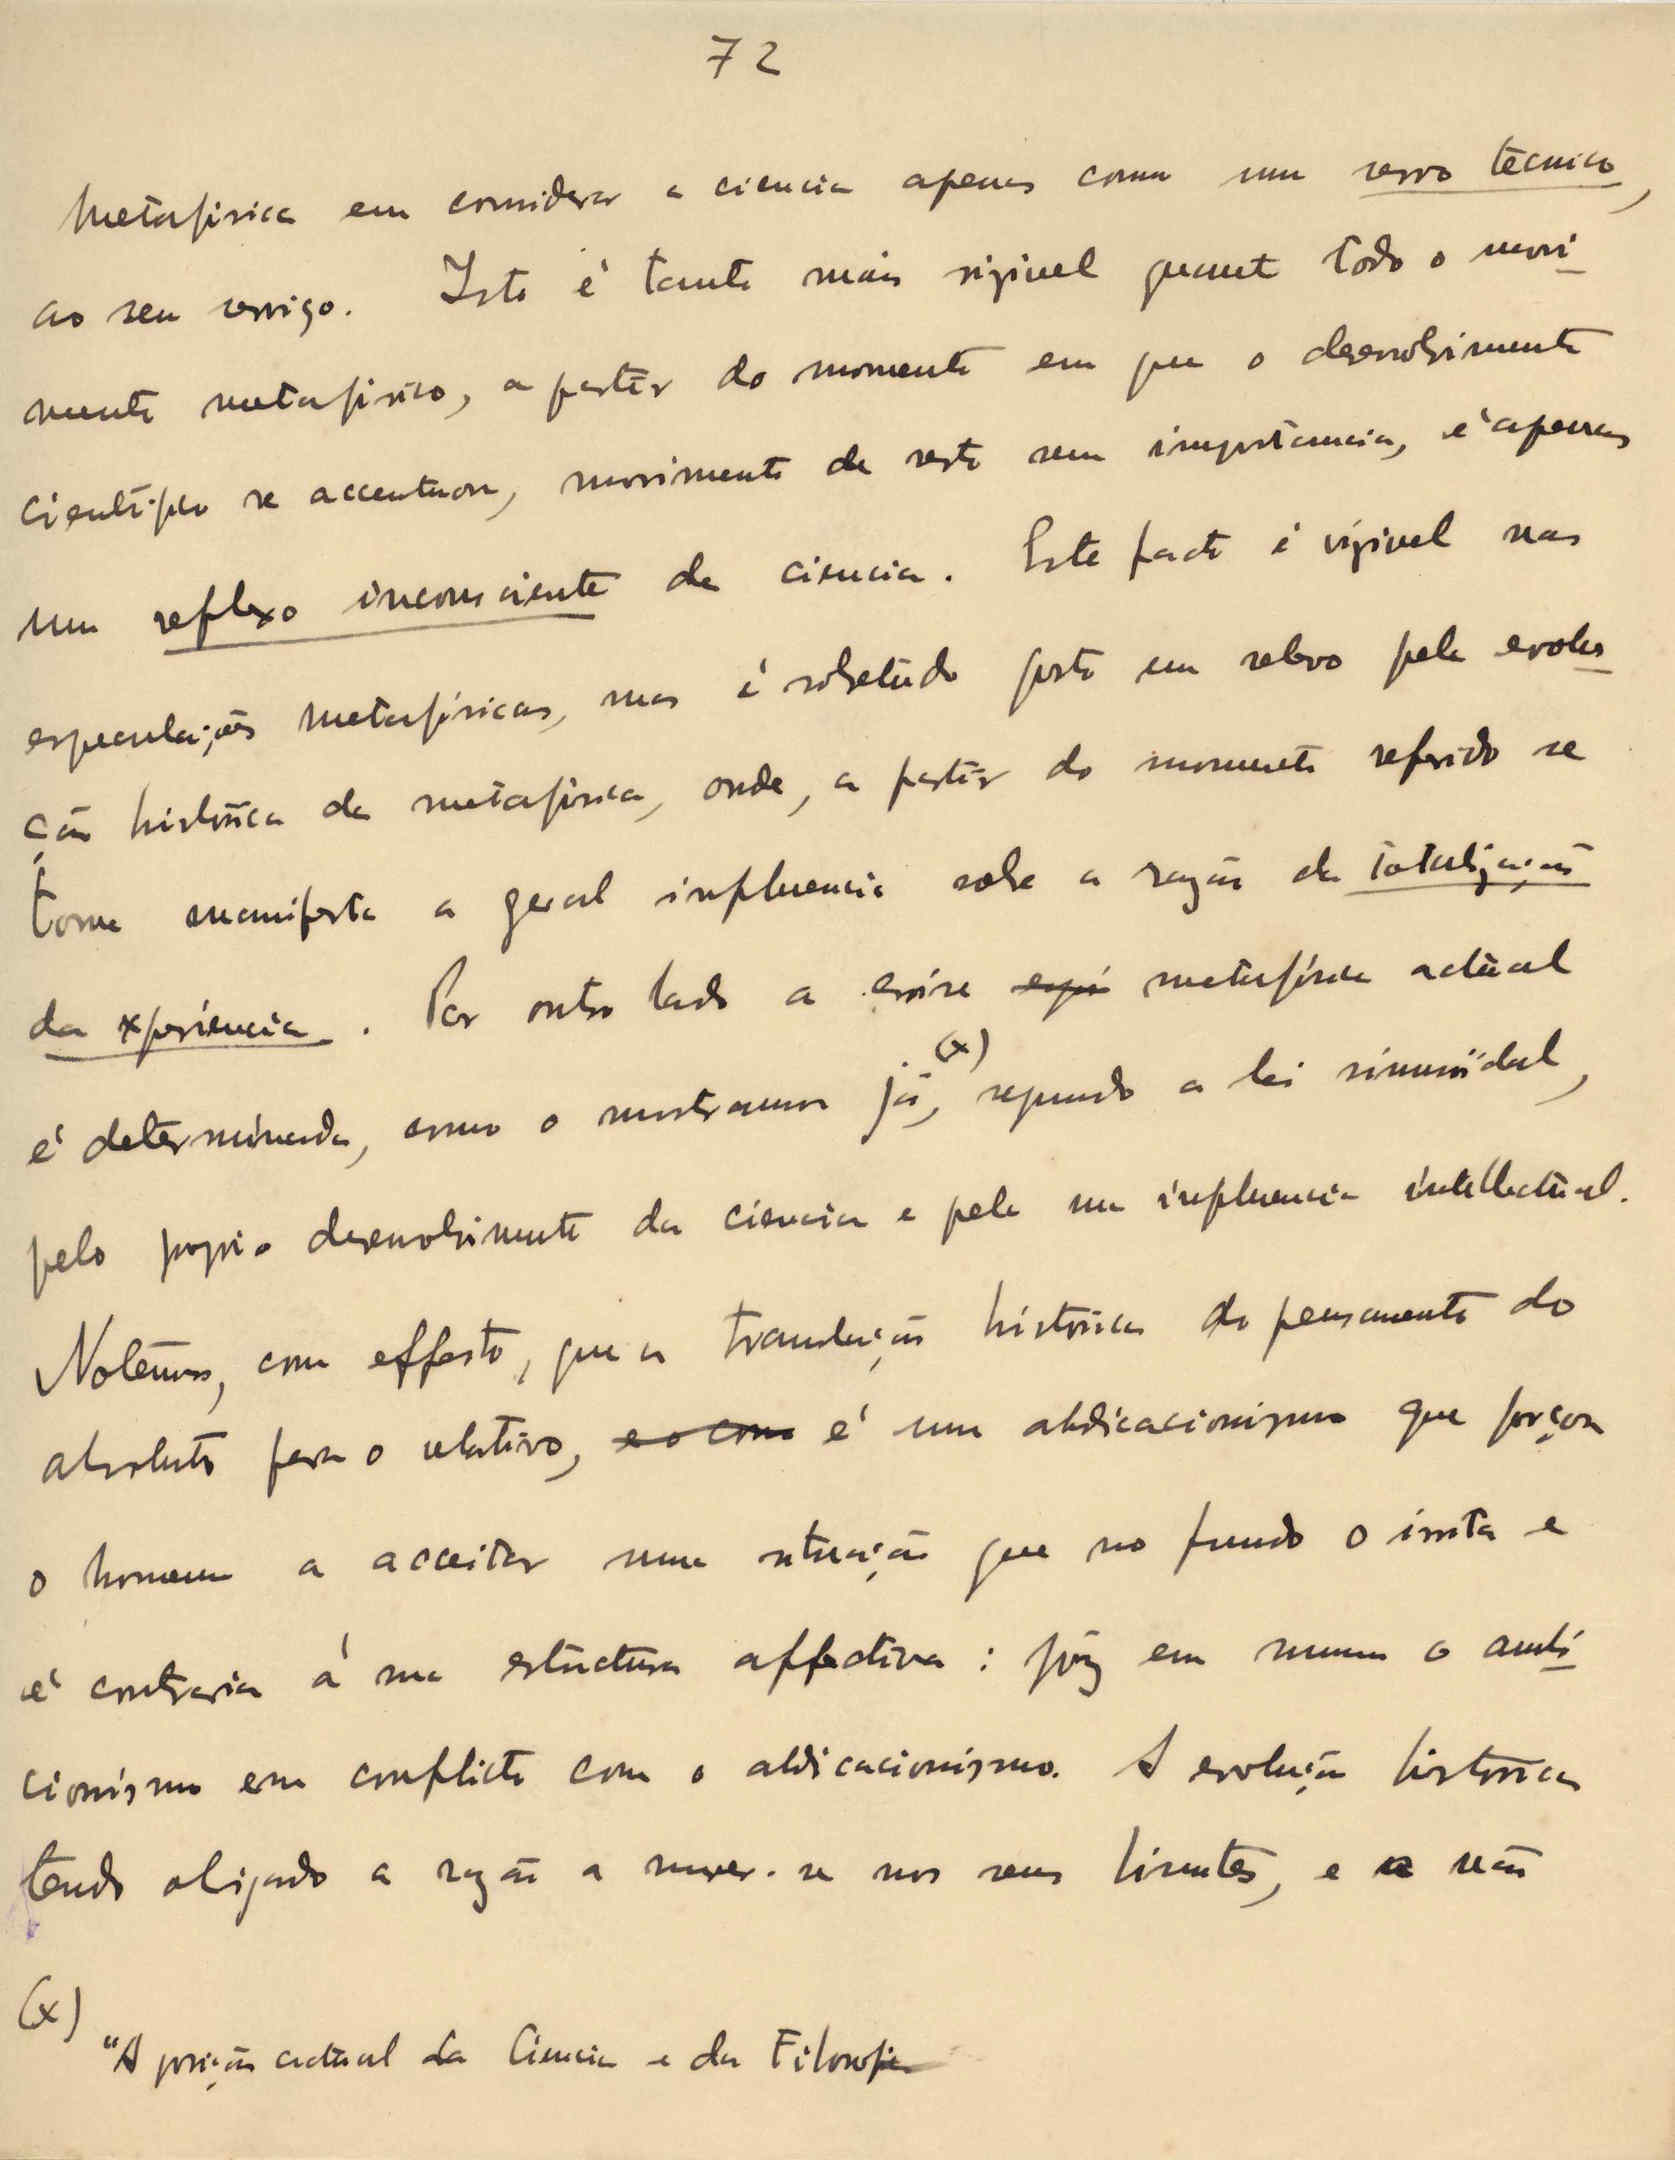 72
metafisica em considerar a ciencia apenas como um servo técnico,
ao seu serviço. Isto é tanto mais risivel quanto todo o movi-
mento metafisico, a partir do momento em que o desenvolvimento
cientifico se accentuou, movimento de resto sem importancia, é apenas
um reflexo inconsciente da ciencia. Este facto é visivel nas
especulações metafisicas, mas é sobretudo posto em relevo pela evolu-
ção histórica da metafisica, onde, a partir do momento referido se
torna manifesta a geral influencia sobre a razão da totalização
da experiencia. Por outro lado a crise metafisica actual
é determinada, como o mostramos já (x), segundo a lei sinusoidal,
pelo proprio desenvolvimento da ciencia e pela sua influencia intellectual.
Notemos, com effeito, que a translação histórica do pensamento do
absoluto para o relativo, é um abdicacionismo que forçou
o homem a acceitar uma situação que no fundo o irrita e
é contraria á sua estructura affectiva: pôz em summa o ambi-
cionismo em conflicto com o abdicacionismo. A evolução histórica
tendo obrigado a razão a mover-se nos seus limites, e não
(x)
"A posição actual da Ciencia e da Filosofia